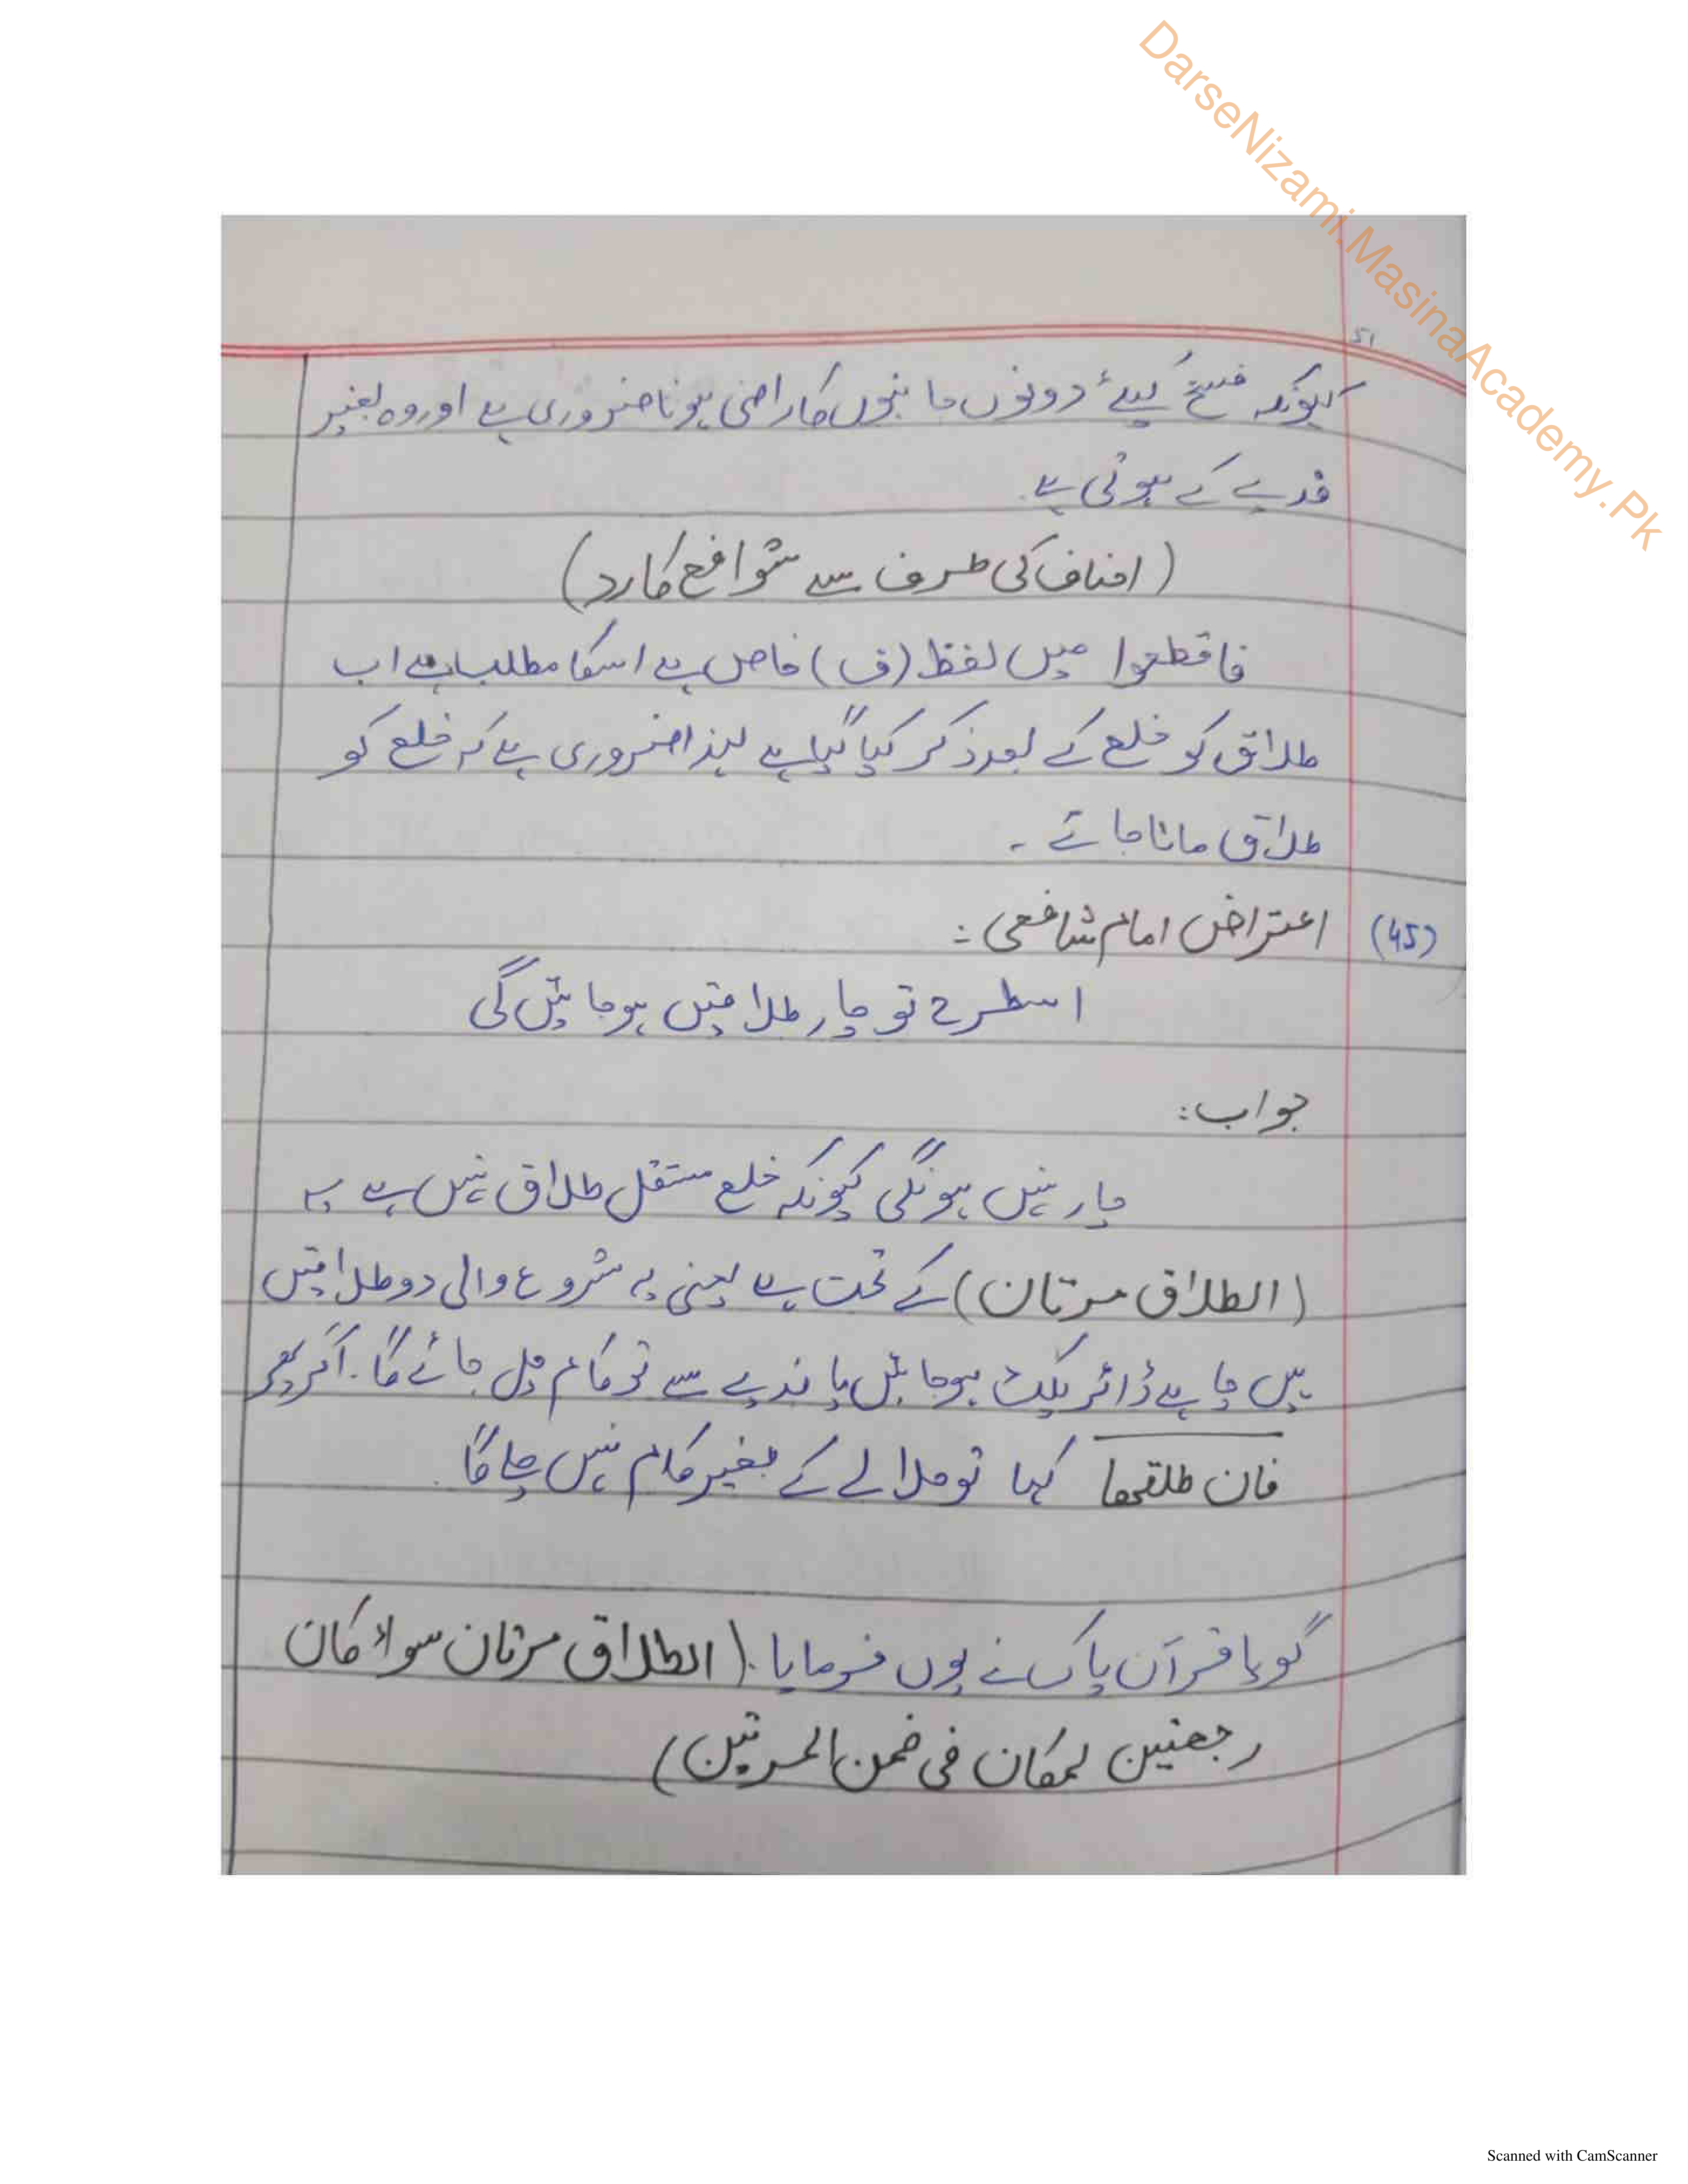 DarseNizami.MasinaAcademy.Pk
51
کیونکہ فسخ کیلئے دونوں جانبوں کا راضی ہونا ضروری ہے اور وہ بغیر
فدیے کے ہوتی ہے
(احناف کی طرف سے شوافع کا رد)
فاقطعوا میں لفظ (ف) خاص ہے اسکا مطلب ہے اب
طلاق کو خلع کے بعد ذکر کیا گیا ہے لہذا ضروری ہے کہ خلع کو
طلاق مانا جائے ۔
(45) اعتراض امام شافعی :
اسطرح تو چار طلاقیں ہوجائیں گی
جواب:
چار نہیں ہونگی کیونکہ خلع مستقل طلاق نہیں ہے یہ
(الطلاق مرتان) کے تحت ہے یعنی یہ شروع والی دو طلاقیں
ہیں چاہے ڈائریکٹ ہوجائیں یا فدیے سے تو کام چل جائے گا۔ اگر پھر
فان طلقھا کہا تو حلالے کے بغیر کام نہیں چلے گا
گویا قرآن پاک نے یوں فرمایا۔ (الطلاق مرتان سواء کان
رجعتین لمکان فی ضمن المرتین)
Scanned with CamScanner